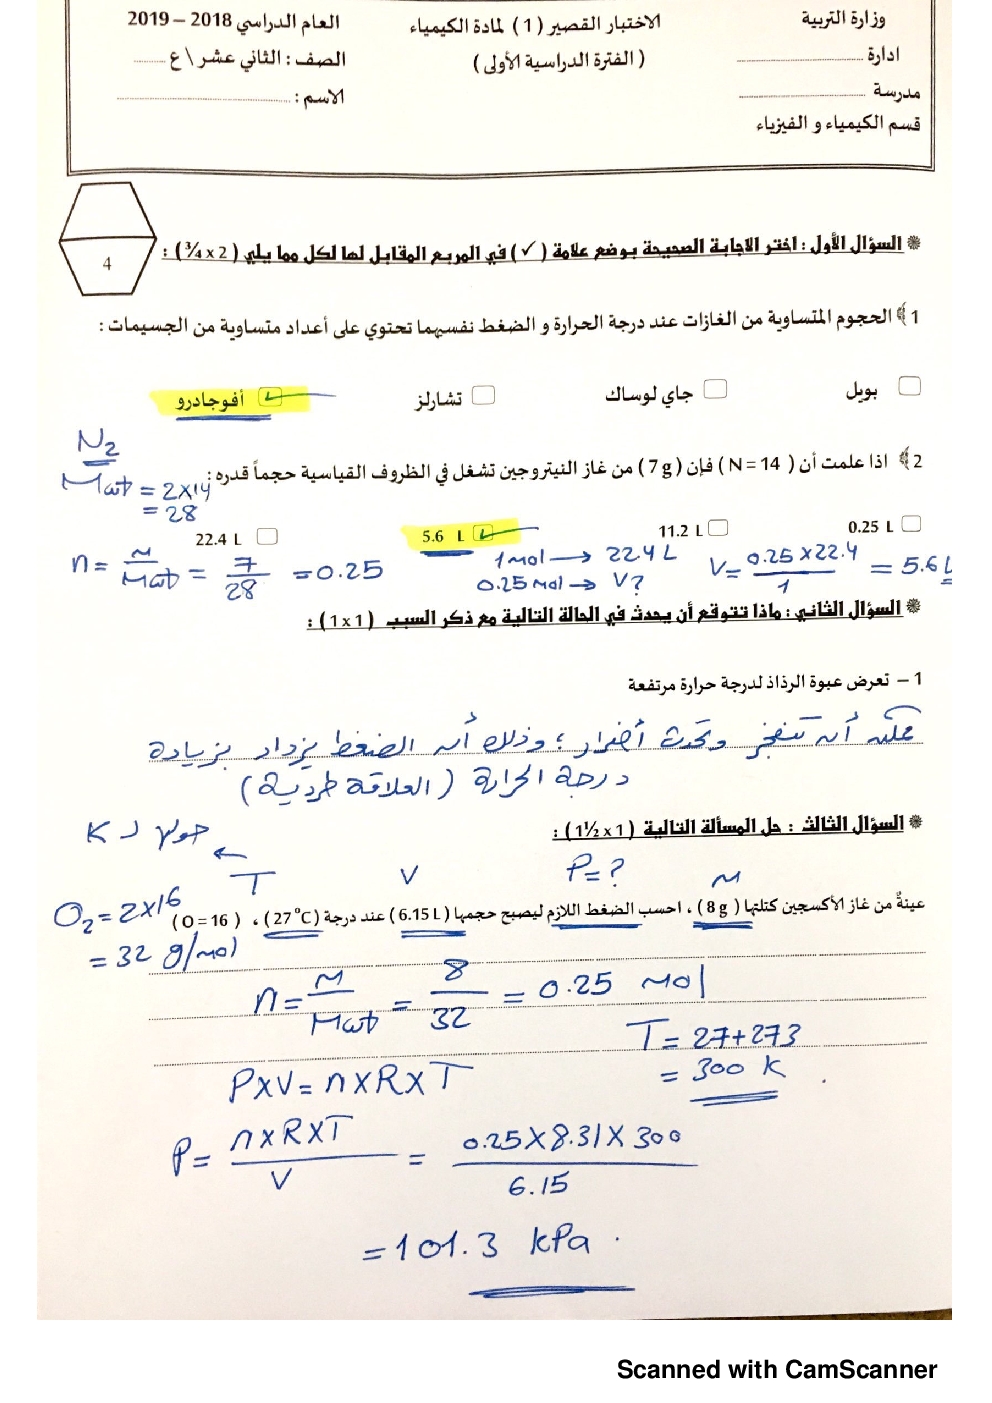 وزارة التربية
ادارة
مدرسة
قسم الكيمياء و الفيزياء
الاختبار القصير ( 1 ) لمادة الكيمياء
( الفترة الدراسية الأولى )
العام الدراسي 2018 – 2019
الصف : الثاني عشر \ ع
الاسم :
4
السؤال الأول : اختر الاجابة الصحيحة بوضع علامة ( ✓ ) في المربع المقابل لها لكل مما يلي ( 2 x ¾ ) :
1 الحجوم المتساوية من الغازات عند درجة الحرارة و الضغط نفسيهما تحتوي على أعداد متساوية من الجسيمات :
بويل جاي لوساك تشارلز أفوجادرو
N2
2 اذا علمت أن ( N = 14 ) فإن ( 7 g ) من غاز النيتروجين تشغل في الظروف القياسية حجماً قدره :
Mwt = 2x14
= 28
0.25 L 11.2 L 5.6 L 22.4 L
n = M/Mwt = 7/28 = 0.25
1 mol → 22.4 L
0.25 mol → V?
V = 0.25 x 22.4 / 1 = 5.6 L
السؤال الثاني : ماذا تتوقع أن يحدث في الحالة التالية مع ذكر السبب ( 1 x 1 ) :
1 – تعرض عبوة الرذاذ لدرجة حرارة مرتفعة
يمكنه أن تنفجر وتحدث أضرار ؛ وذلك أن الضغط يزداد بزيادة
درجة الحرارة ( العلاقة طردية )
السؤال الثالث : حل المسألة التالية ( 1 x 1½ ) :
حول لـ K
←
T V P=? M
عينةٌ من غاز الأكسجين كتلتها ( 8 g ) ، احسب الضغط اللازم ليصبح حجمها ( 6.15 L ) عند درجة ( 27 °C ) ، ( O = 16 )
O2 = 2x16
= 32 g/mol
n = M/Mwt = 8/32 = 0.25 mol
T = 27+273
= 300 K
PxV = nxRxT
P = nxRxT / V = 0.25x8.31x300 / 6.15
= 101.3 kPa.
Scanned with CamScanner